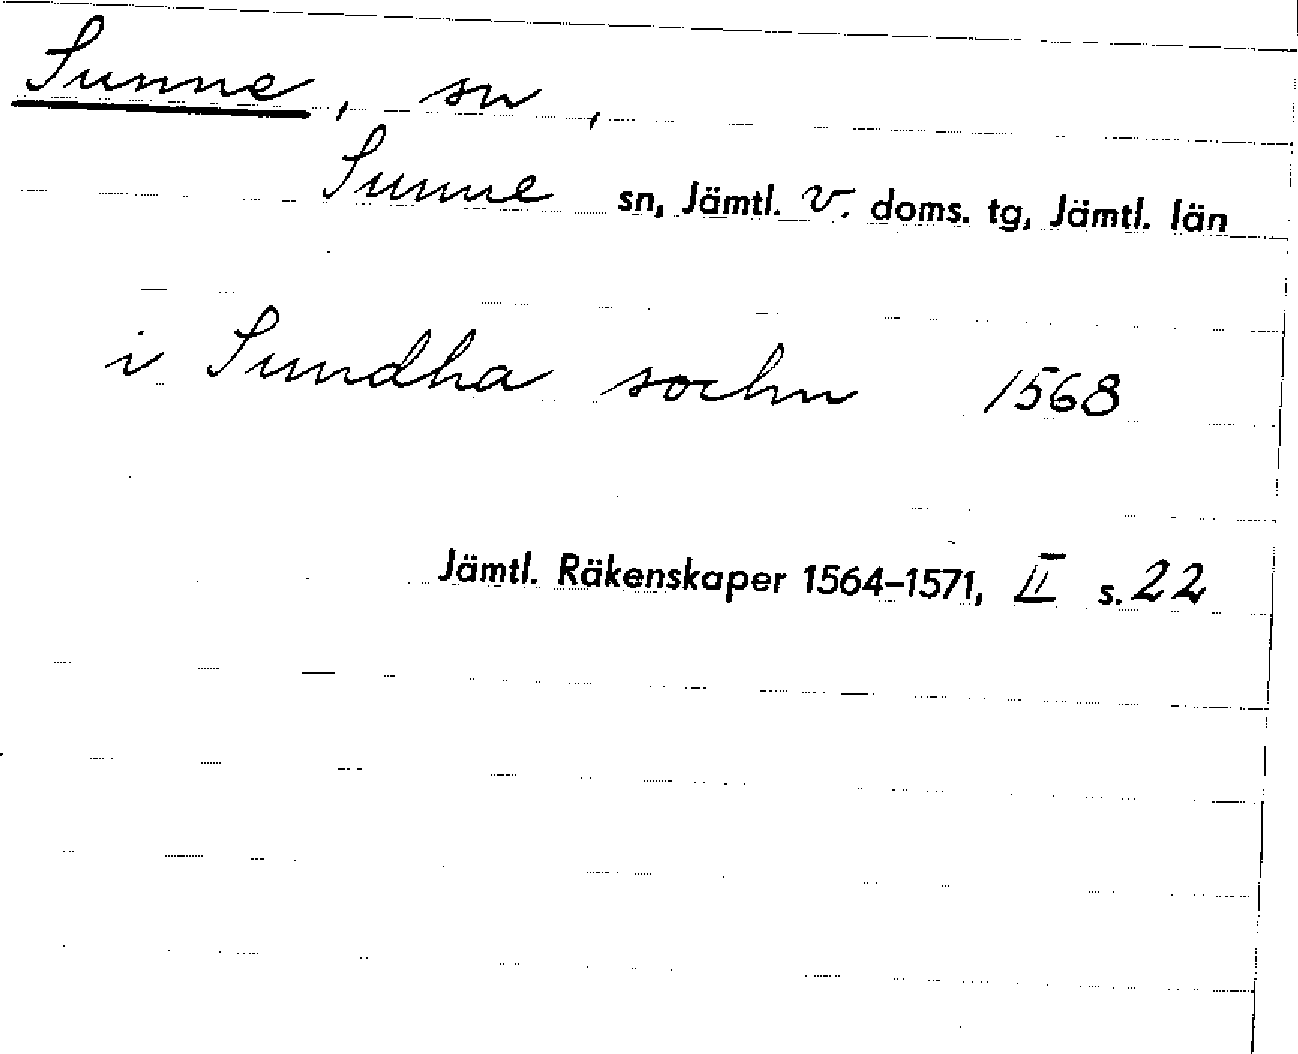 Sunne, sn,
Sunne sn, Jämtl. v. doms. tg, Jämtl. län
i Sundha sochn 1568
Jämtl. Räkenskaper 1564–1571, II s. 22